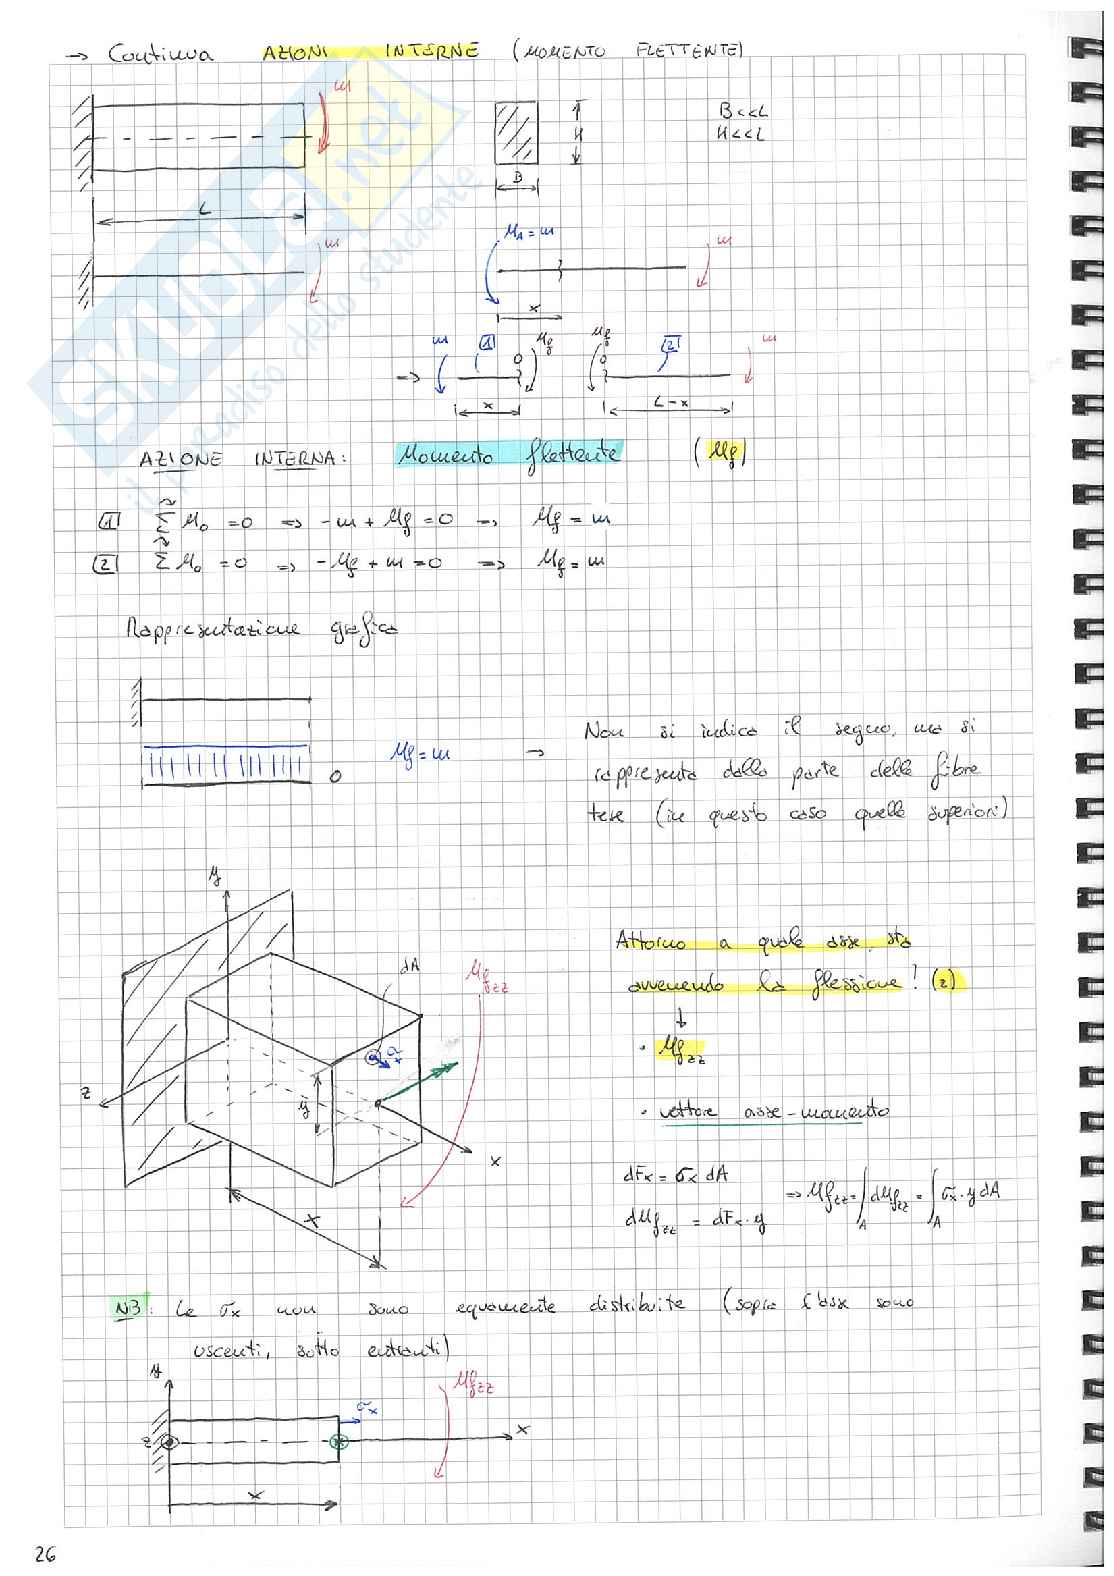 → Continua AZIONI INTERNE (MOMENTO FLETTENTE)
m
H
B<<L
H<<L
B
L
m
M_A = m
m
x
m
1
M_f
M_f
2
m
O
O
→
x
L-x
AZIONE INTERNA: Momento flettente (M_f)
1 Σ M_o = 0 => -m + M_f = 0 → M_f = m
2 Σ M_o = 0 => -M_f + m = 0 => M_f = m
Rappresentazione grafica
M_f = m
O
→ Non si indica il segno, ma si
rappresenta dalla parte delle fibre
tese (in questo caso quelle superiori)
y
dA
M_fzz
σ_x
z
y
x
x
Attorno a quale asse sta
avvenendo la flessione? (z)
↓
• M_fzz
• vettore asse-momento
dF_x = σ_x dA
dM_fzz = dF_x · y
=> M_fzz = ∫_A dM_fzz = ∫_A σ_x · y dA
NB: Le σ_x non sono equamente distribuite (sopra l'asse sono
uscenti, sotto entranti)
y
M_fzz
σ_x
z
x
x
26
SKUOLA.net
il paradiso dello studente